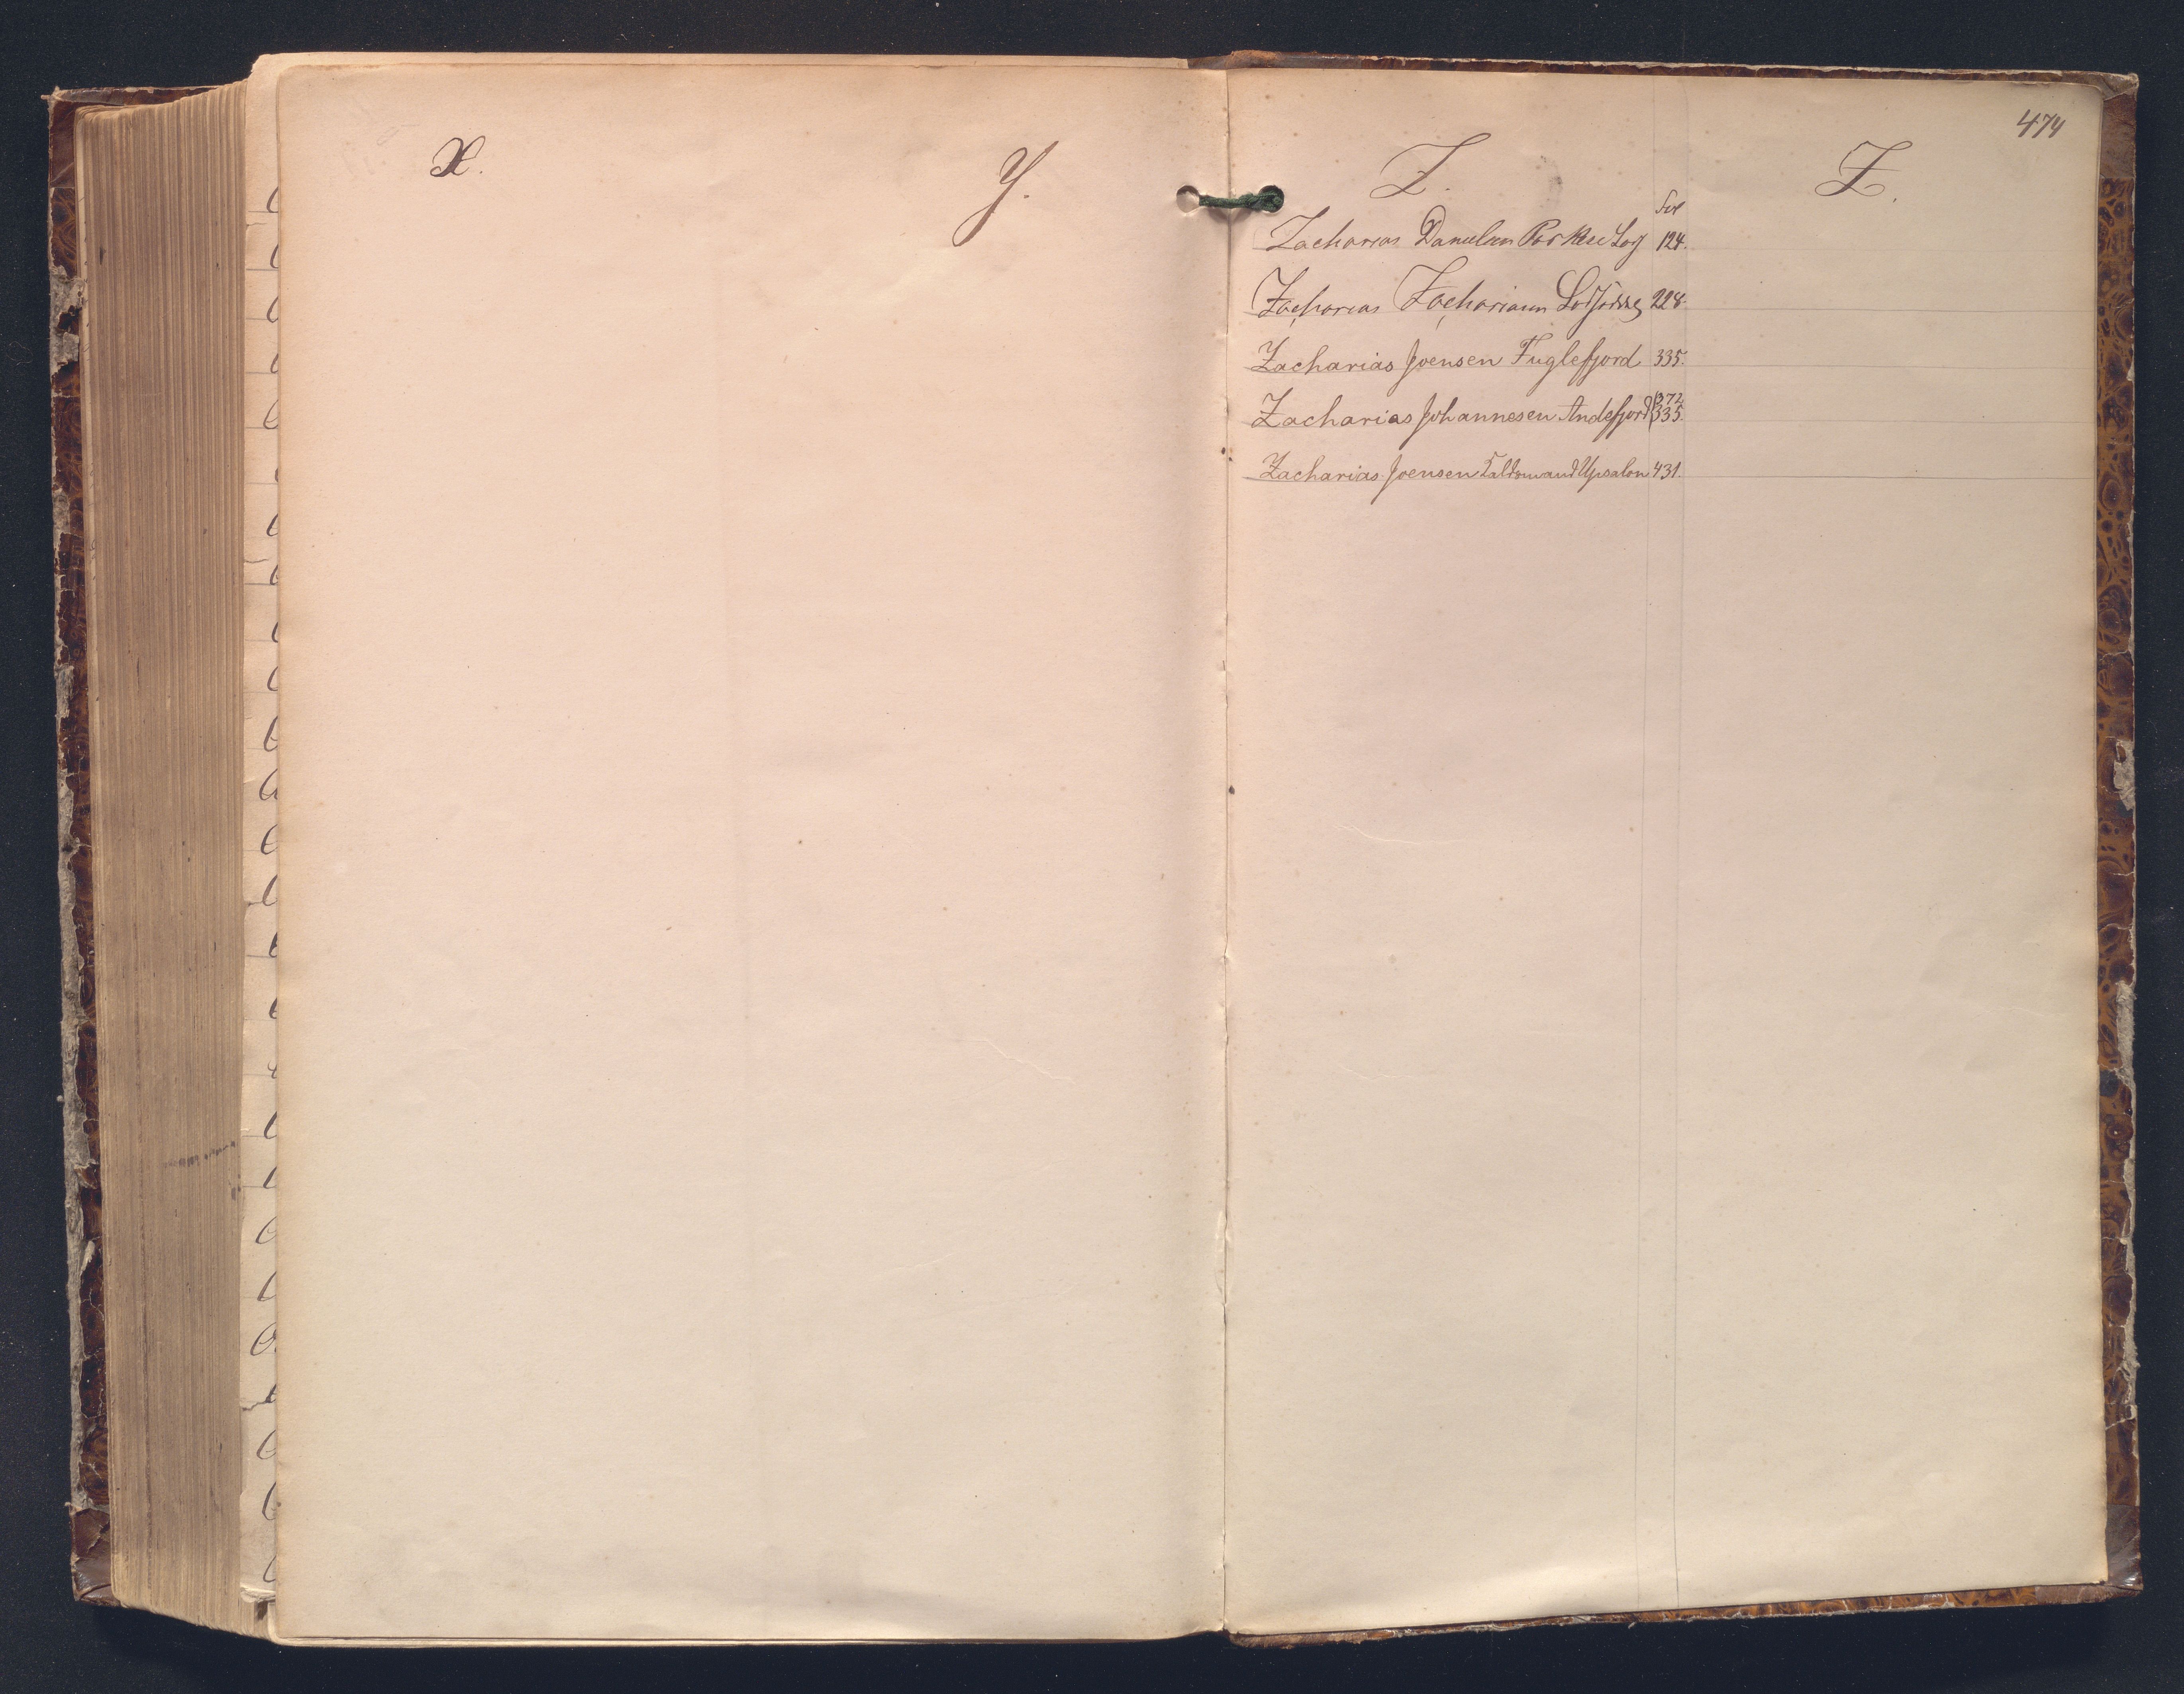 X.
Y.
474
Z.
Z.
Fol
Zacharias Danielsen 124.
Zacharias Zachariasen 228.
Zacharias Joensen Fuglefjord 335.
Zacharias Johannesen Andefjord 372 335.
Zacharias Joensen Upsalon 431.